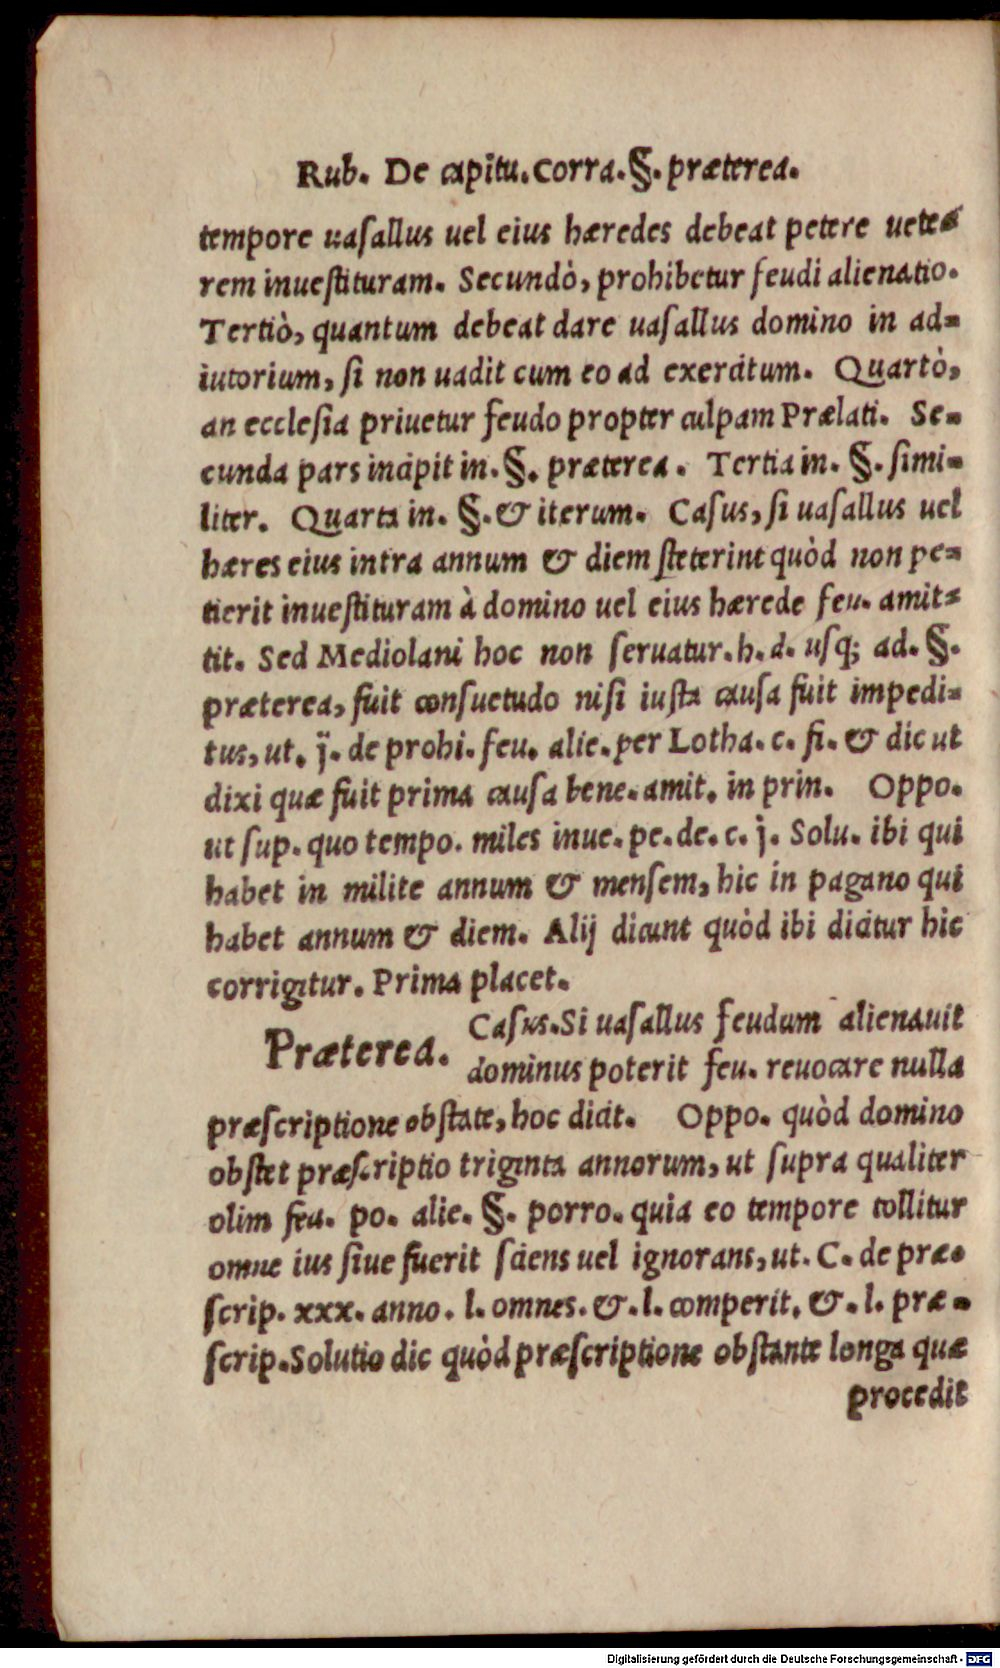 Rub. De capitu. Corra. §. præterea.
tempore uasallus uel eius hæredes debeat petere uete=
rem inuestituram. Secundò, prohibetur feudi alienatio.
Tertiò, quantum debeat dare uasallus domino in ad=
iutorium, si non uadit cum eo ad exercitum. Quartò,
an ecclesia priuetur feudo propter culpam Prælati. Se=
cunda pars incipit in. §. præterea. Tertia in. §. simi=
liter. Quarta in. §. & iterum. Casus, si uasallus uel
hæres eius intra annum & diem steterint quòd non pe=
tierit inuestituram à domino uel eius hærede feu. amit=
tit. Sed Mediolani hoc non seruatur. h. d. usq; ad. §.
præterea, fuit consuetudo nisi iusta causa fuit impedi=
tus, ut. j. de prohi. feu. alie. per Lotha. c. fi. & dic ut
dixi quæ fuit prima causa bene. amit. in prin. Oppo.
ut sup. quo tempo. miles inue. pe. de. c. j. Solu. ibi qui
habet in milite annum & mensem, hic in pagano qui
habet annum & diem. Alij dicunt quòd ibi dicitur hic
corrigitur. Prima placet.
Præterea. Casus. Si uasallus feudum alienauit
dominus poterit feu. reuocare nulla
præscriptione obstate, hoc dicit. Oppo. quòd domino
obstet præscriptio triginta annorum, ut supra qualiter
olim feu. po. alie. §. porro. quia eo tempore tollitur
omne ius siue fuerit sciens uel ignorans, ut. C. de præ=
scrip. xxx. anno. l. omnes. &. l. comperit. &. l. præ=
scrip. Solutio dic quòd præscriptione obstante longa quæ
procedit
Digitalisierung gefördert durch die Deutsche Forschungsgemeinschaft - DFG